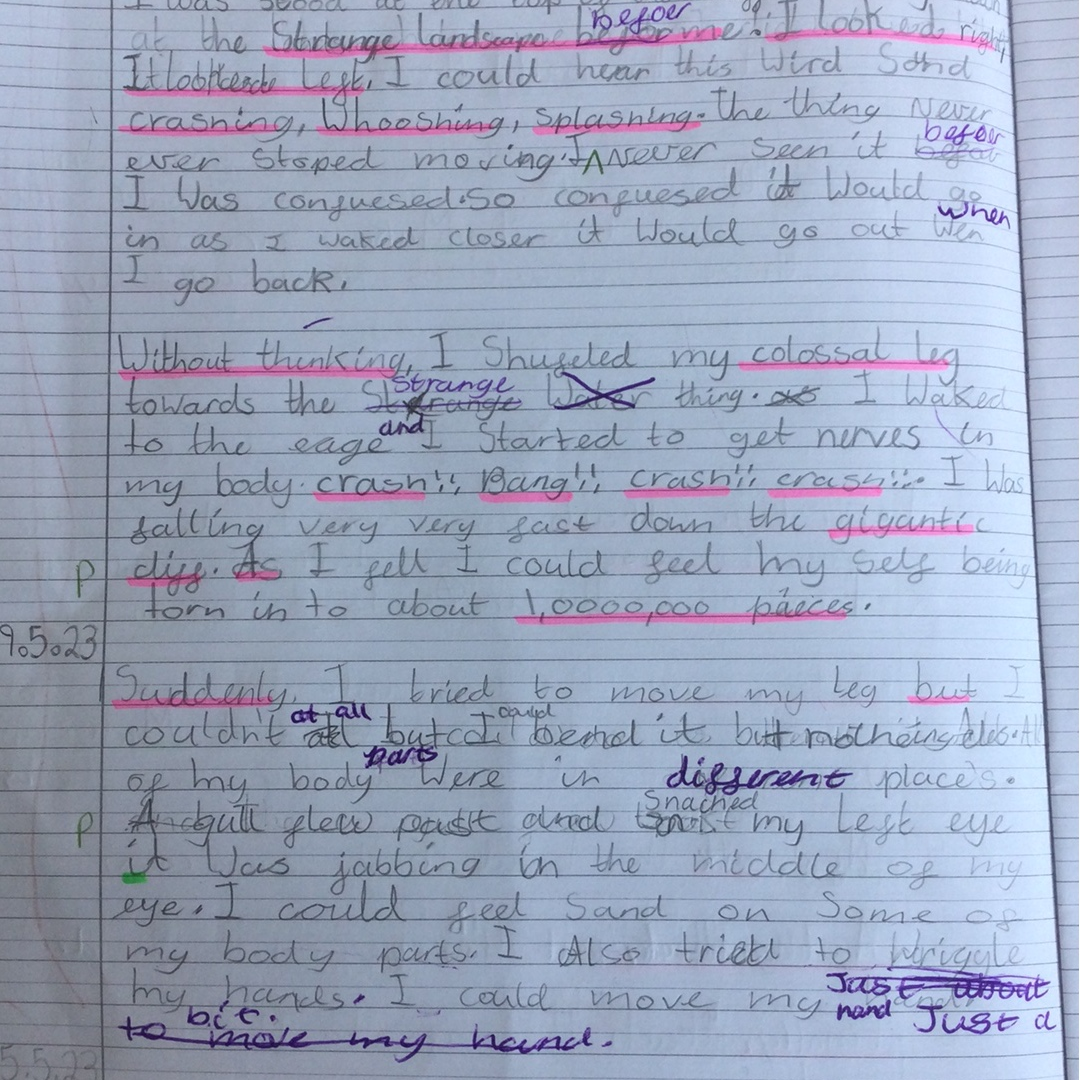 I was stood at the top of
at the Strange landscape befoer me. I looked right,
I looked left, I could hear this wird Sond
crashing, Whooshing, splashing. The thing never
ever stoped moving. I never seen it befoer
I Was confuesed. So confuesed it Would go
in as I waked closer it Would go out When
I go back.
Without thinking, I Shufeled my colossal leg
towards the Strange thing. I Waked
to the eage and I Started to get nerves in
my body. crash!!, Bang!!, crash!! crash!!. I Was
falling very very fast down the gigantic
cliff. As I fell I could feel my self being
P
torn in to about 1,0000,000 paeces.
9.5.23
Suddenly, I tried to move my leg but I
couldn't at all but I could bend it but nothing els. All
of my body parts Were in different places.
P
A gull flew past and Snached my left eye
it Was jabbing in the middle of my
eye. I could feel Sand on Some of
my body parts. I Also tried to wriggle
my hands. I could move my hand Just a
bit.
to move my hand.
5.5.23